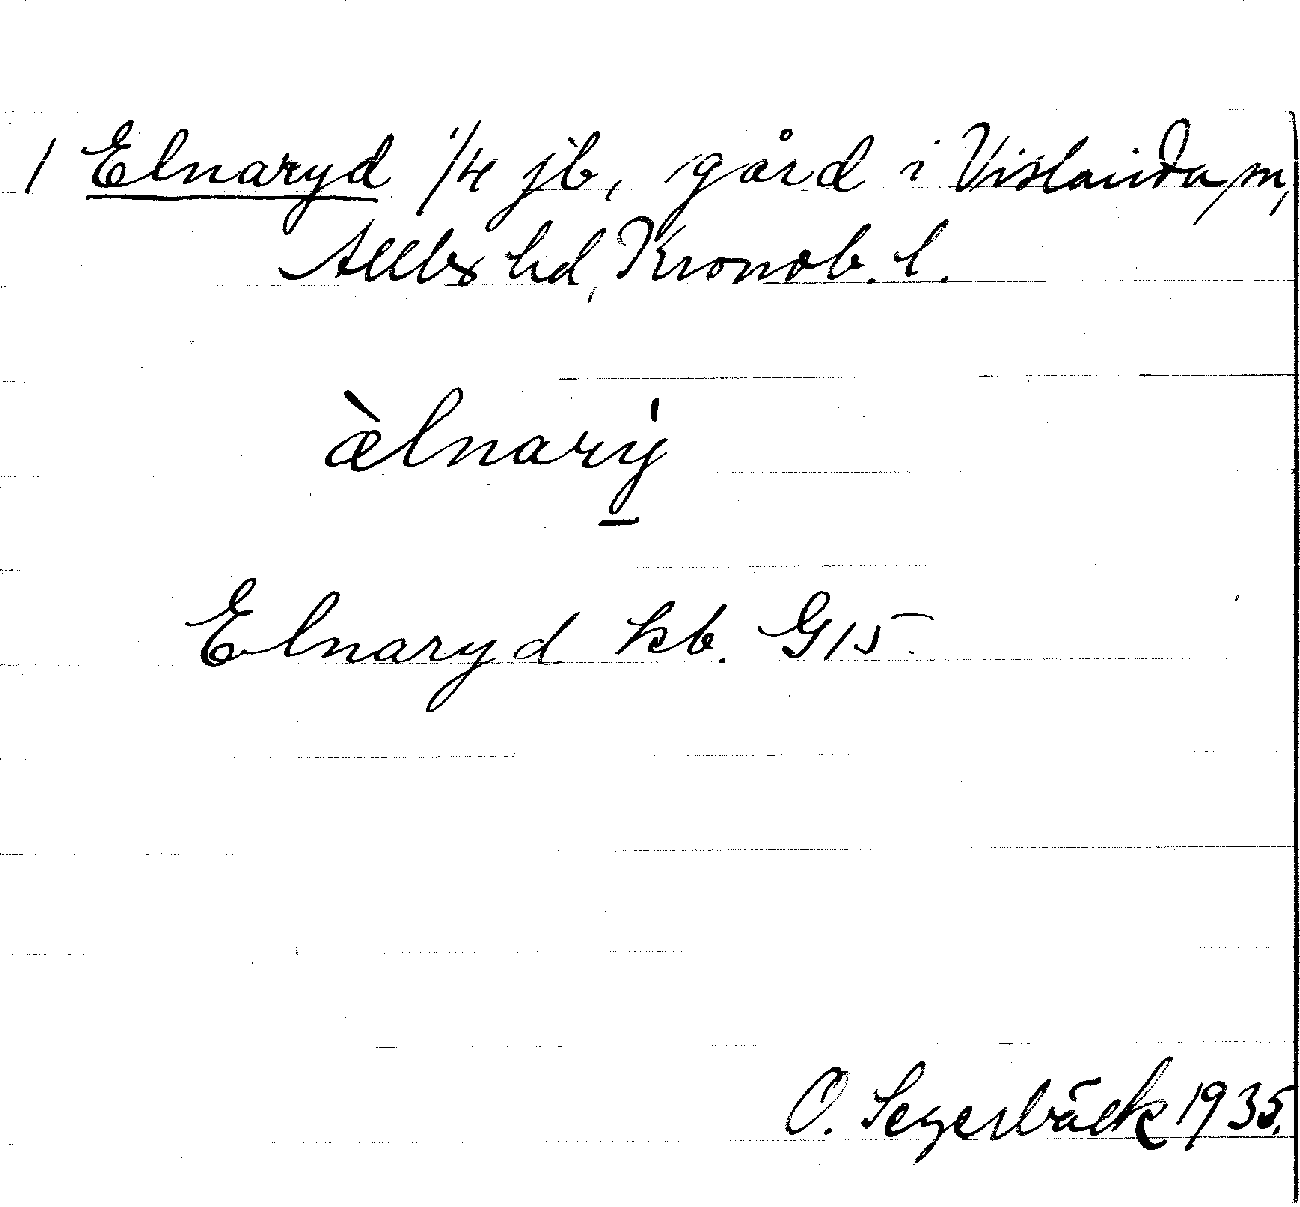 1 Elnaryd 1/4 jb, gård i Vislanda sn,
Allbo hd, Kronob. l.
ælnarẏ
Elnaryd kb. G15
O. Segerbäck 1935.